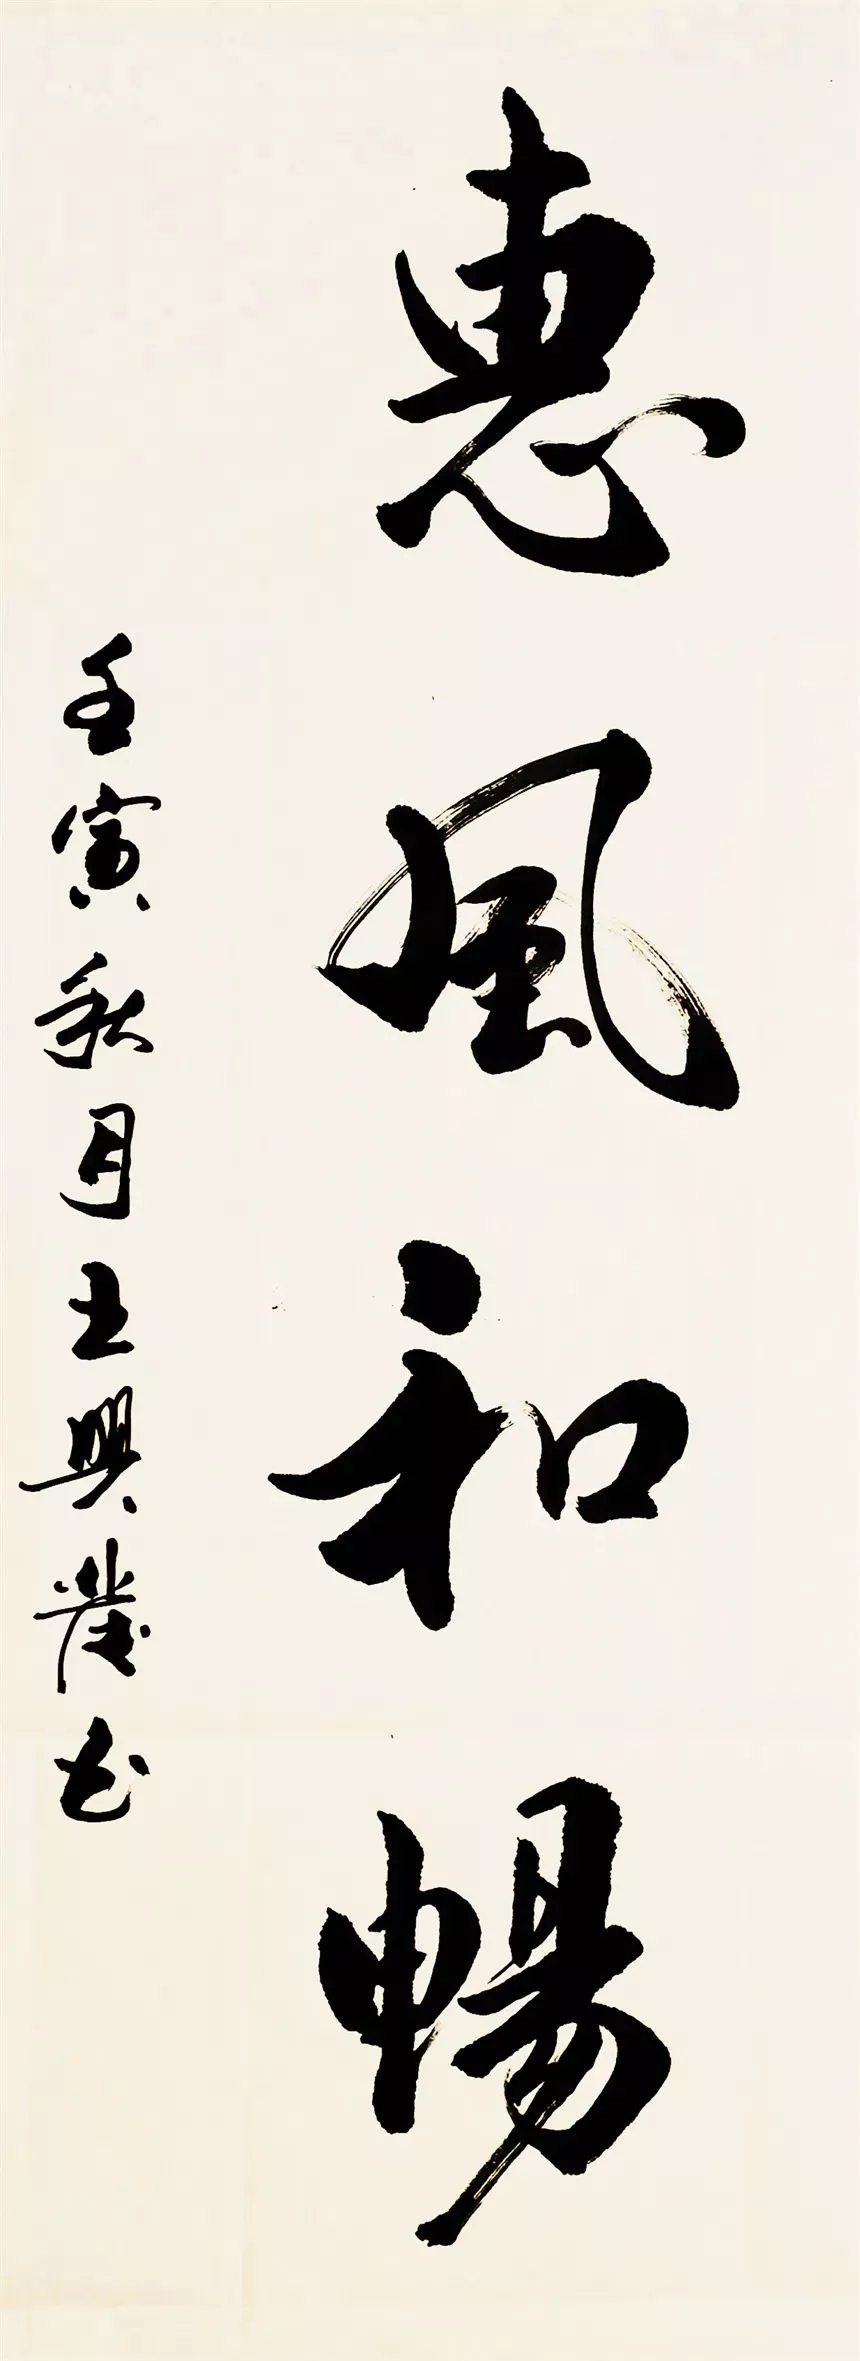 惠風和暢
壬寅秋月王興